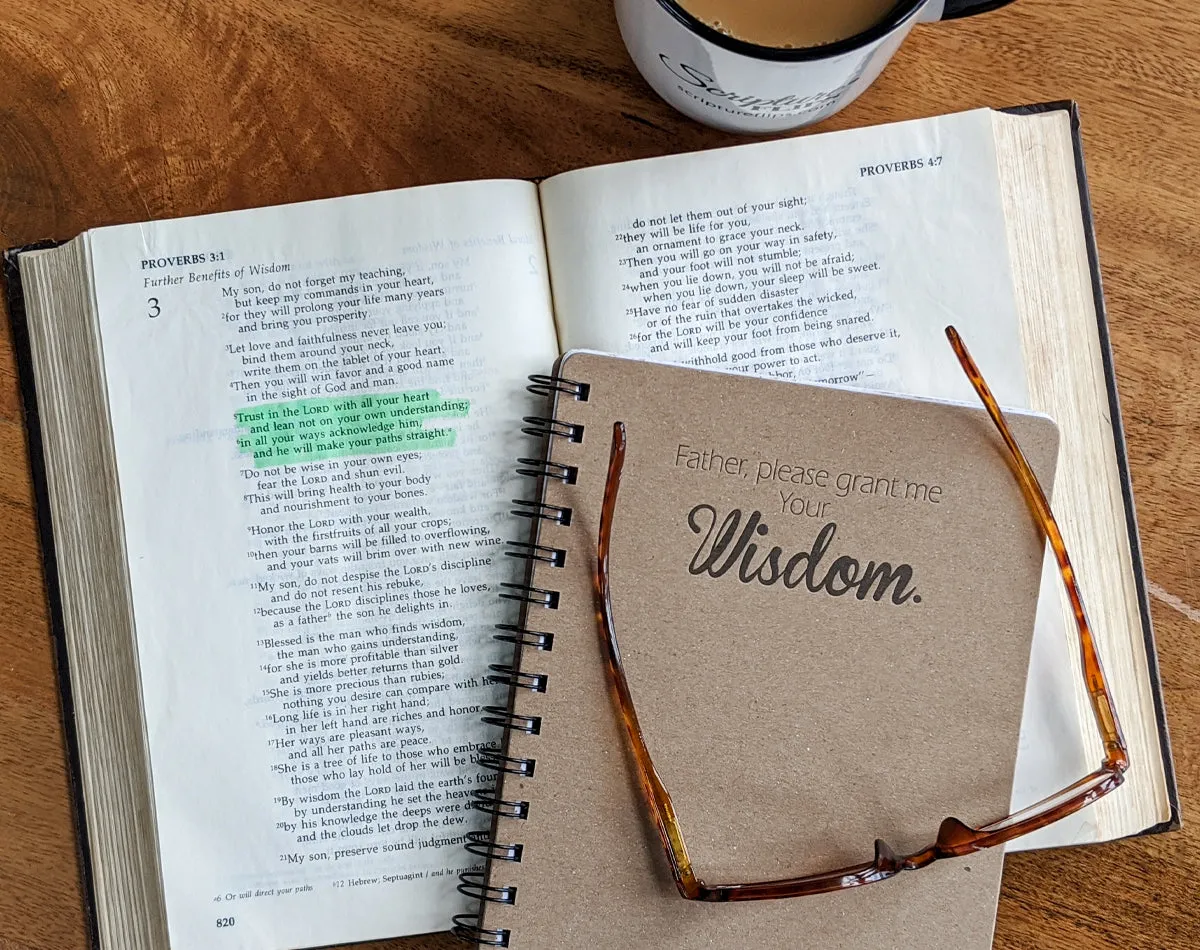 Scripture
scriptureflips.com
PROVERBS 3:1
Further Benefits of Wisdom
3
My son, do not forget my teaching,
but keep my commands in your heart,
2for they will prolong your life many years
and bring you prosperity.
3Let love and faithfulness never leave you;
bind them around your neck,
write them on the tablet of your heart.
4Then you will win favor and a good name
in the sight of God and man.
5Trust in the LORD with all your heart
and lean not on your own understanding;
6in all your ways acknowledge him,
and he will make your paths straight.a
7Do not be wise in your own eyes;
fear the LORD and shun evil.
8This will bring health to your body
and nourishment to your bones.
9Honor the LORD with your wealth,
with the firstfruits of all your crops;
10then your barns will be filled to overflowing,
and your vats will brim over with new wine.
11My son, do not despise the LORD's discipline
and do not resent his rebuke,
12because the LORD disciplines those he loves,
as a fatherb the son he delights in.
13Blessed is the man who finds wisdom,
the man who gains understanding,
14for she is more profitable than silver
and yields better returns than gold.
15She is more precious than rubies;
nothing you desire can compare with
16Long life is in her right hand;
in her left hand are riches and honor.
17Her ways are pleasant ways,
and all her paths are peace.
18She is a tree of life to those who embrace
those who lay hold of her will be
19By wisdom the LORD laid the earth's
by understanding he set the
20by his knowledge the deeps were
and the clouds let drop the dew.
21My son, preserve sound judgment
a6 Or will direct your paths b12 Hebrew; Septuagint / and he punishes
820
PROVERBS 4:7
do not let them out of your sight;
22they will be life for you,
an ornament to grace your neck.
23Then you will go on your way in safety,
and your foot will not stumble;
24when you lie down, you will not be afraid;
when you lie down, your sleep will be sweet.
25Have no fear of sudden disaster
or of the ruin that overtakes the wicked,
26for the LORD will be your confidence
and will keep your foot from being snared.
withhold good from those who deserve it,
your power to act.
Father, please grant me
Your
Wisdom.